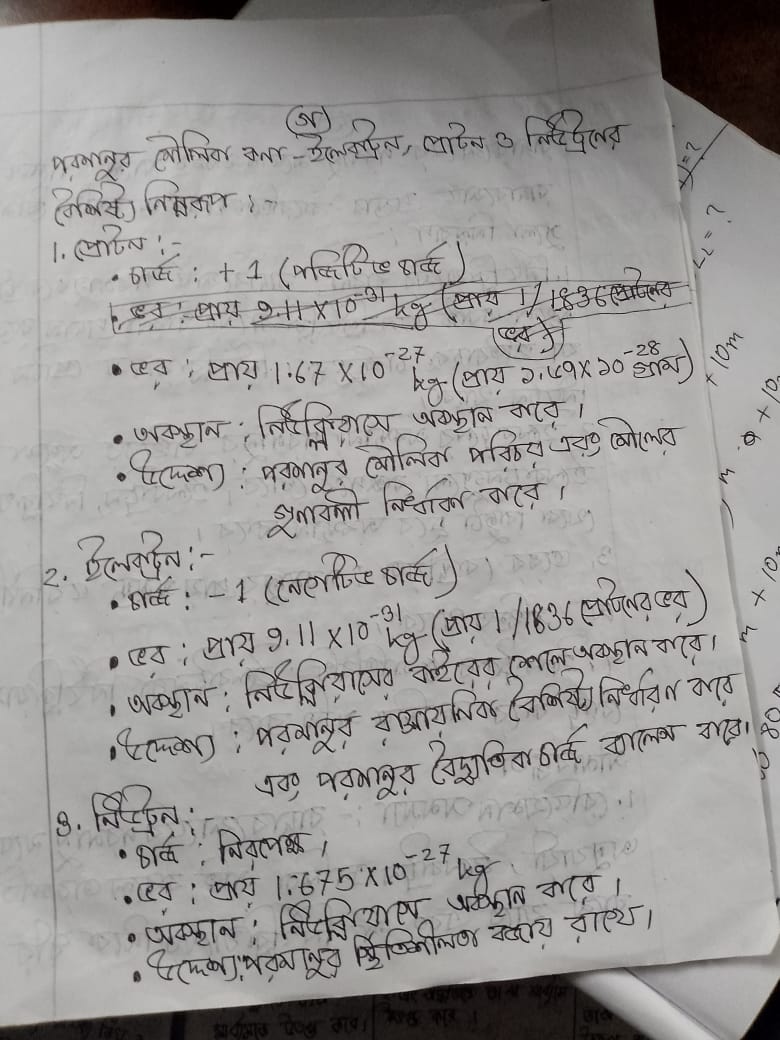 (অ)
পরমানুর মৌলিক কনা - ইলেকট্রন, প্রোটন ও নিউট্রনের
বৈশিষ্ট্য নিম্নরূপ :-
1. প্রোটন :-
• চার্জ : +1 (পজিটিভ চার্জ)
• ভর : প্রায় 9.11 X 10⁻³¹ kg (প্রায় 1/1836 প্রোটনের
ভর)
• ভর : প্রায় 1.67 X 10⁻²⁷ kg (প্রায় ১.৬৭ X ১০⁻²⁸ গ্রাম)
• অবস্থান : নিউক্লিয়াসে অবস্থান করে।
• উদ্দেশ্য : পরমানুর মৌলিক পরিচয় এবং মৌলের
গুনাবলী নির্ধারণ করে।
2. ইলেকট্রন :-
• চার্জ : - 1 (নেগেটিভ চার্জ)
• ভর : প্রায় 9.11 X 10⁻³¹ kg (প্রায় 1/1836 প্রোটনের ভর)
• অবস্থান : নিউক্লিয়াসের বাইরের শেলে অবস্থান করে।
• উদ্দেশ্য : পরমানুর রাসায়নিক বৈশিষ্ট্য নির্ধারণ করে
এবং পরমানুর বৈদ্যুতিক চার্জ ব্যালেন্স করে।
3. নিউট্রন :-
• চার্জ : নিরপেক্ষ।
• ভর : প্রায় 1.675 X 10⁻²⁷ kg.
• অবস্থান : নিউক্লিয়াসে অবস্থান করে।
• উদ্দেশ্য : পরমানুর স্থিতিশীলতা বজায় রাখে।
= ?
L2 = ?
x 10m